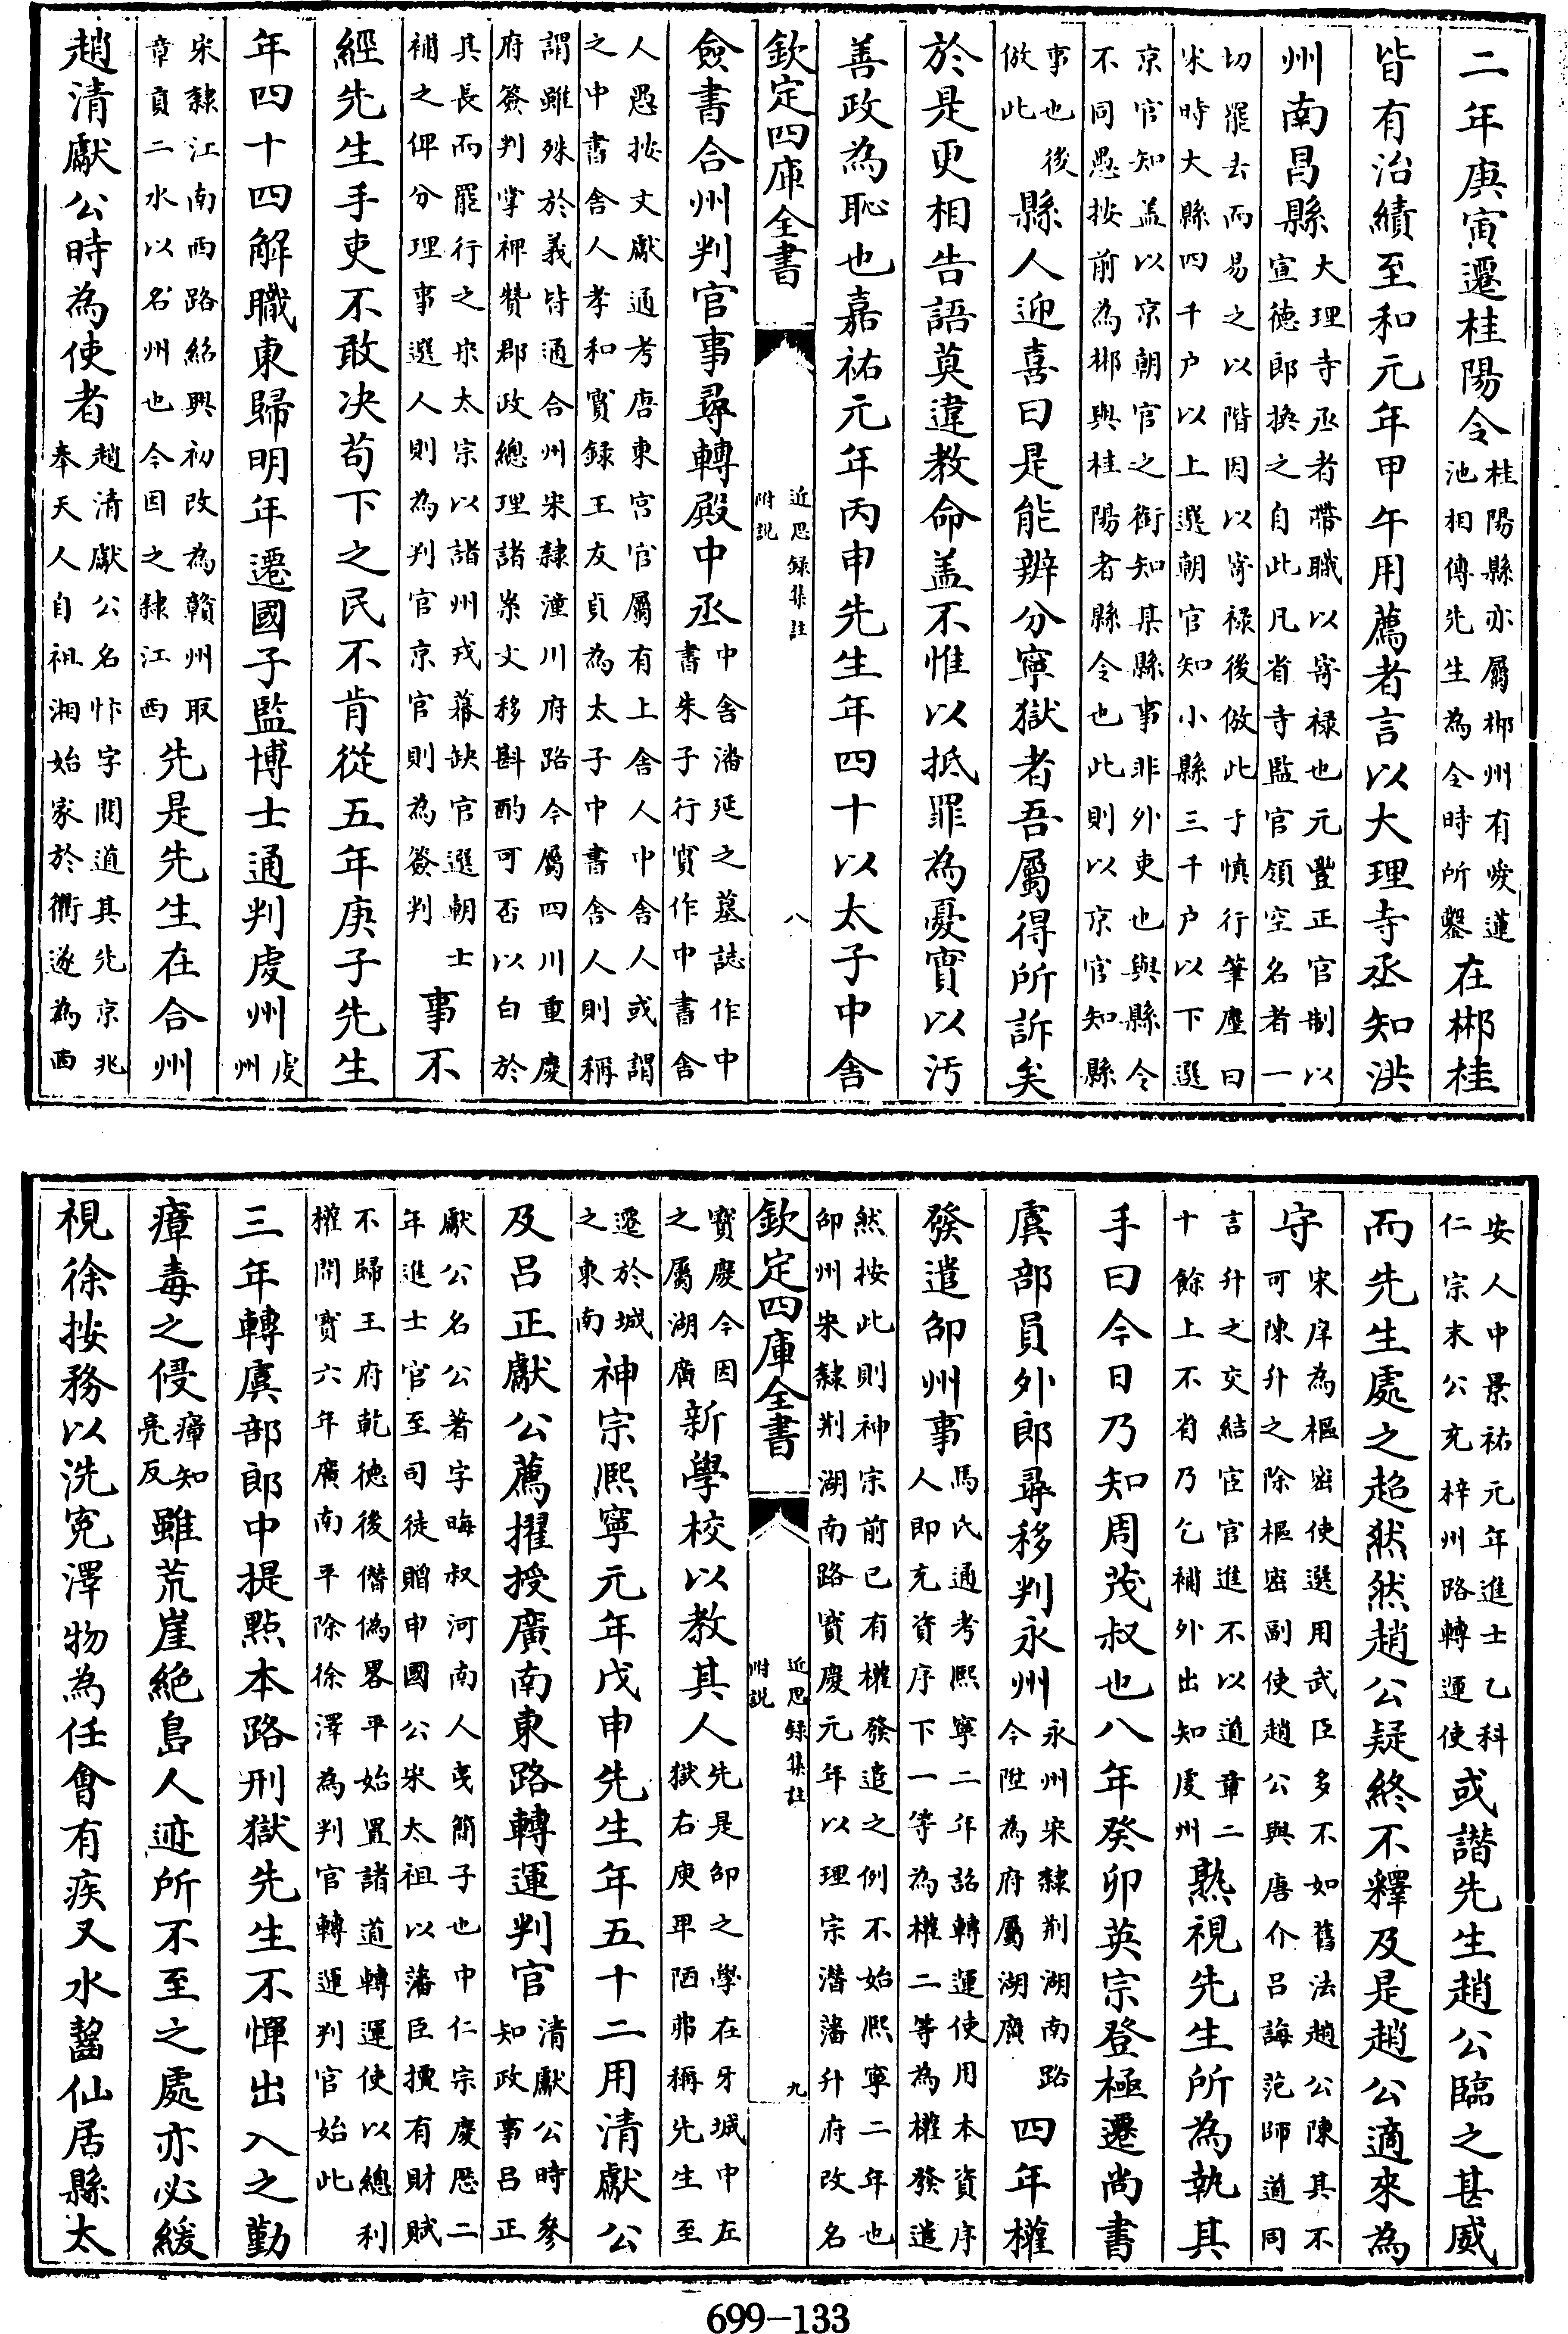 二年庚寅遷桂陽令桂陽縣亦屬郴州有愛蓮池相傳先生為令時所鑿在郴桂
皆有治績至和元年甲午用薦者言以大理寺丞知洪
州南昌縣大理寺丞者帶職以寄禄也元豐正官制以宣德郎換之自此凡省寺監官領空名者一
切罷去而易之以階因以寄禄後倣此于慎行筆麈曰宋時大縣四千户以上選朝官知小縣三千户以下選
京官知盖以京朝官之銜知某縣事非外吏也與縣令不同愚按前為郴與桂陽者縣令也此則以京官知縣
事也後倣此縣人迎喜曰是能辨分寧獄者吾屬得所訴矣
於是更相告語莫違教命盖不惟以抵罪為憂實以汚
善政為恥也嘉祐元年丙申先生年四十以太子中舍
欽定四庫全書 近思録集註附説 八
僉書合州判官事尋轉殿中丞中舍潘延之墓誌作中書朱子行實作中書舍
人愚按文獻通考唐東宮官屬有上舍人中舍人或謂之中書舍人孝和實録王友貞為太子中書舍人則稱
謂雖殊於義皆通合州宋隸潼川府路今屬四川重慶府簽判掌裨贊郡政總理諸案文移斟酌可否以白於
其長而罷行之宋太宗以諸州戎幕缺官選朝士補之俾分理事選人則為判官京官則為簽判事不
經先生手吏不敢决苟下之民不肯從五年庚子先生
年四十四解職東歸明年遷國子監博士通判虔州虔州
宋隸江南西路紹興初改為贛州取章貢二水以名州也今因之隸江西先是先生在合州
趙清獻公時為使者趙清獻公名忭字閲道其先京兆奉天人自祖湘始家於衢遂為西
安人中景祐元年進士乙科仁宗末公充梓州路轉運使或譖先生趙公臨之甚威
而先生處之超然然趙公疑終不釋及是趙公適來為
守宋庠為樞密使選用武臣多不如舊法趙公陳其不可陳升之除樞密副使趙公與唐介呂誨范師道同
言升之交結宦官進不以道章二十餘上不省乃乞補外出知虔州熟視先生所為執其
手曰今日乃知周茂叔也八年癸卯英宗登極遷尚書
虞部員外郎尋移判永州永州宋隸荆湖南路今陞為府屬湖廣四年權
發遣邵州事馬氏通考熙寧二年詔轉運使用本資序人即充資序下一等為權二等為權發遣
然按此則神宗前已有權發遣之例不始熙寧二年也邵州宋隸荆湖南路寳慶元年以理宗潜藩升府改名
欽定四庫全書 近思録集註附説 九
寳慶今因之屬湖廣新學校以教其人先是邵之學在牙城中左獄右庾卑陋弗稱先生至
遷於城之東南神宗熙寧元年戊申先生年五十二用清獻公
及呂正獻公薦擢授廣南東路轉運判官清獻公時參知政事呂正
獻公名公著字晦叔河南人夷簡子也中仁宗慶厯二年進士官至司徒贈申國公宋太祖以藩臣擅有財賦
不歸王府乾德後僭偽畧平始置諸道轉運使以總利權開寳六年廣南平除徐澤為判官轉運判官始此
三年轉虞部郎中提點本路刑獄先生不憚出入之勤
瘴毒之侵瘴知亮反雖荒崖絶島人迹所不至之處亦必緩
視徐按務以洗寃澤物為任會有疾又水齧仙居縣太
699-133